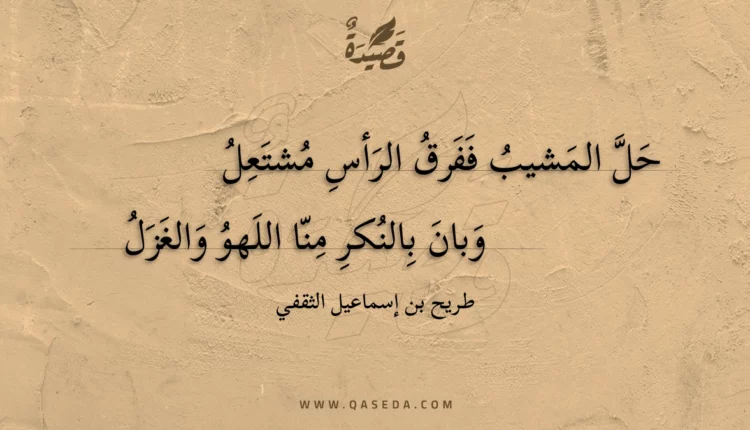 قَصِيْدَةٌ
حَلَّ المَشيبُ فَفَرقُ الرَأسِ مُشتَعِلُ
وَبانَ بِالنُكرِ مِنّا اللَهوُ وَالغَزَلُ
طريح بن إسماعيل الثقفي
WWW.QASEDA.COM